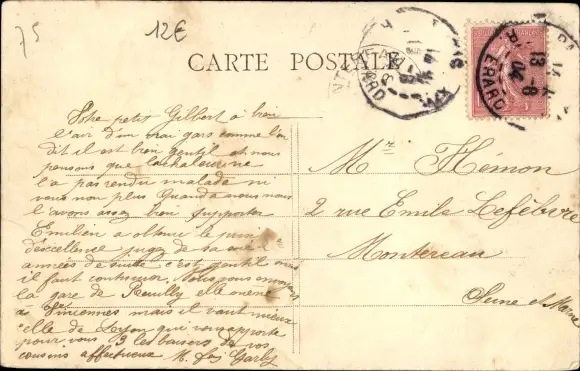 75
12€
CARTE POSTALE
R. ERARD
13 -8
04
Votre petit Gilbert à bien
l'air d'un vrai gars comme l'on
dit il est bien gentil et nous
pensons que la chaleur ne
l'a pas rendu malade ni
vous non plus Quand a nous nous
l'avons assez bien supporter
Emilien a obtenu le prix
d'excellence
années de suite c'est gentil mais
il faut continuer. Nous vous envoyons
la gare de Reuilly elle mène
a Vincennes mais il vaut mieux
celle de Lyon qui vous apporte
pour vous 3 les baisers de vos
cousins affectueux M.
Mr Hémon
2 rue Emile Lefèbvre
Montereau
Seine et Marne